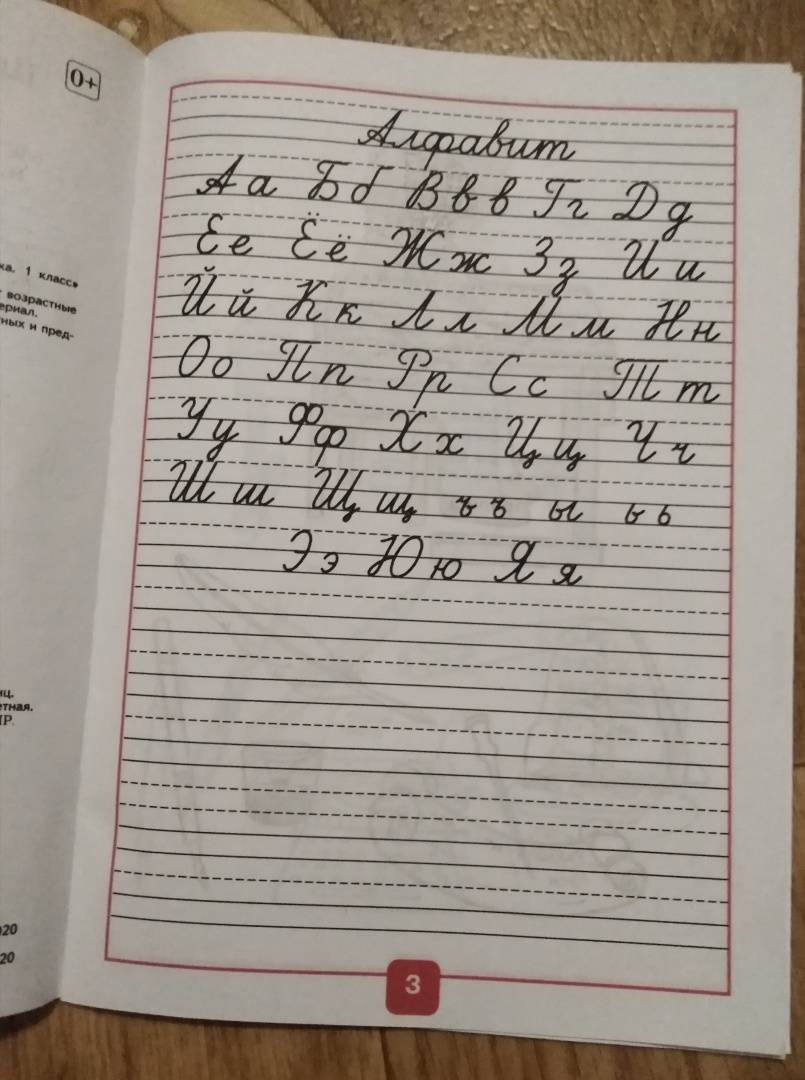 0+
ка. 1 класс»
возрастные
ериал.
ных и пред-
Алфавит
Аа Бб Ввв Гг Дд
Ее Ёё Жж Зз Ии
Йй Кк Лл Мм Нн
Оо Пп Рр Сс Тт
Уу Фф Хх Цц Чч
Шш Щщ ъъ ы ьь
Ээ Юю Яя
иц.
етная.
020
20
3